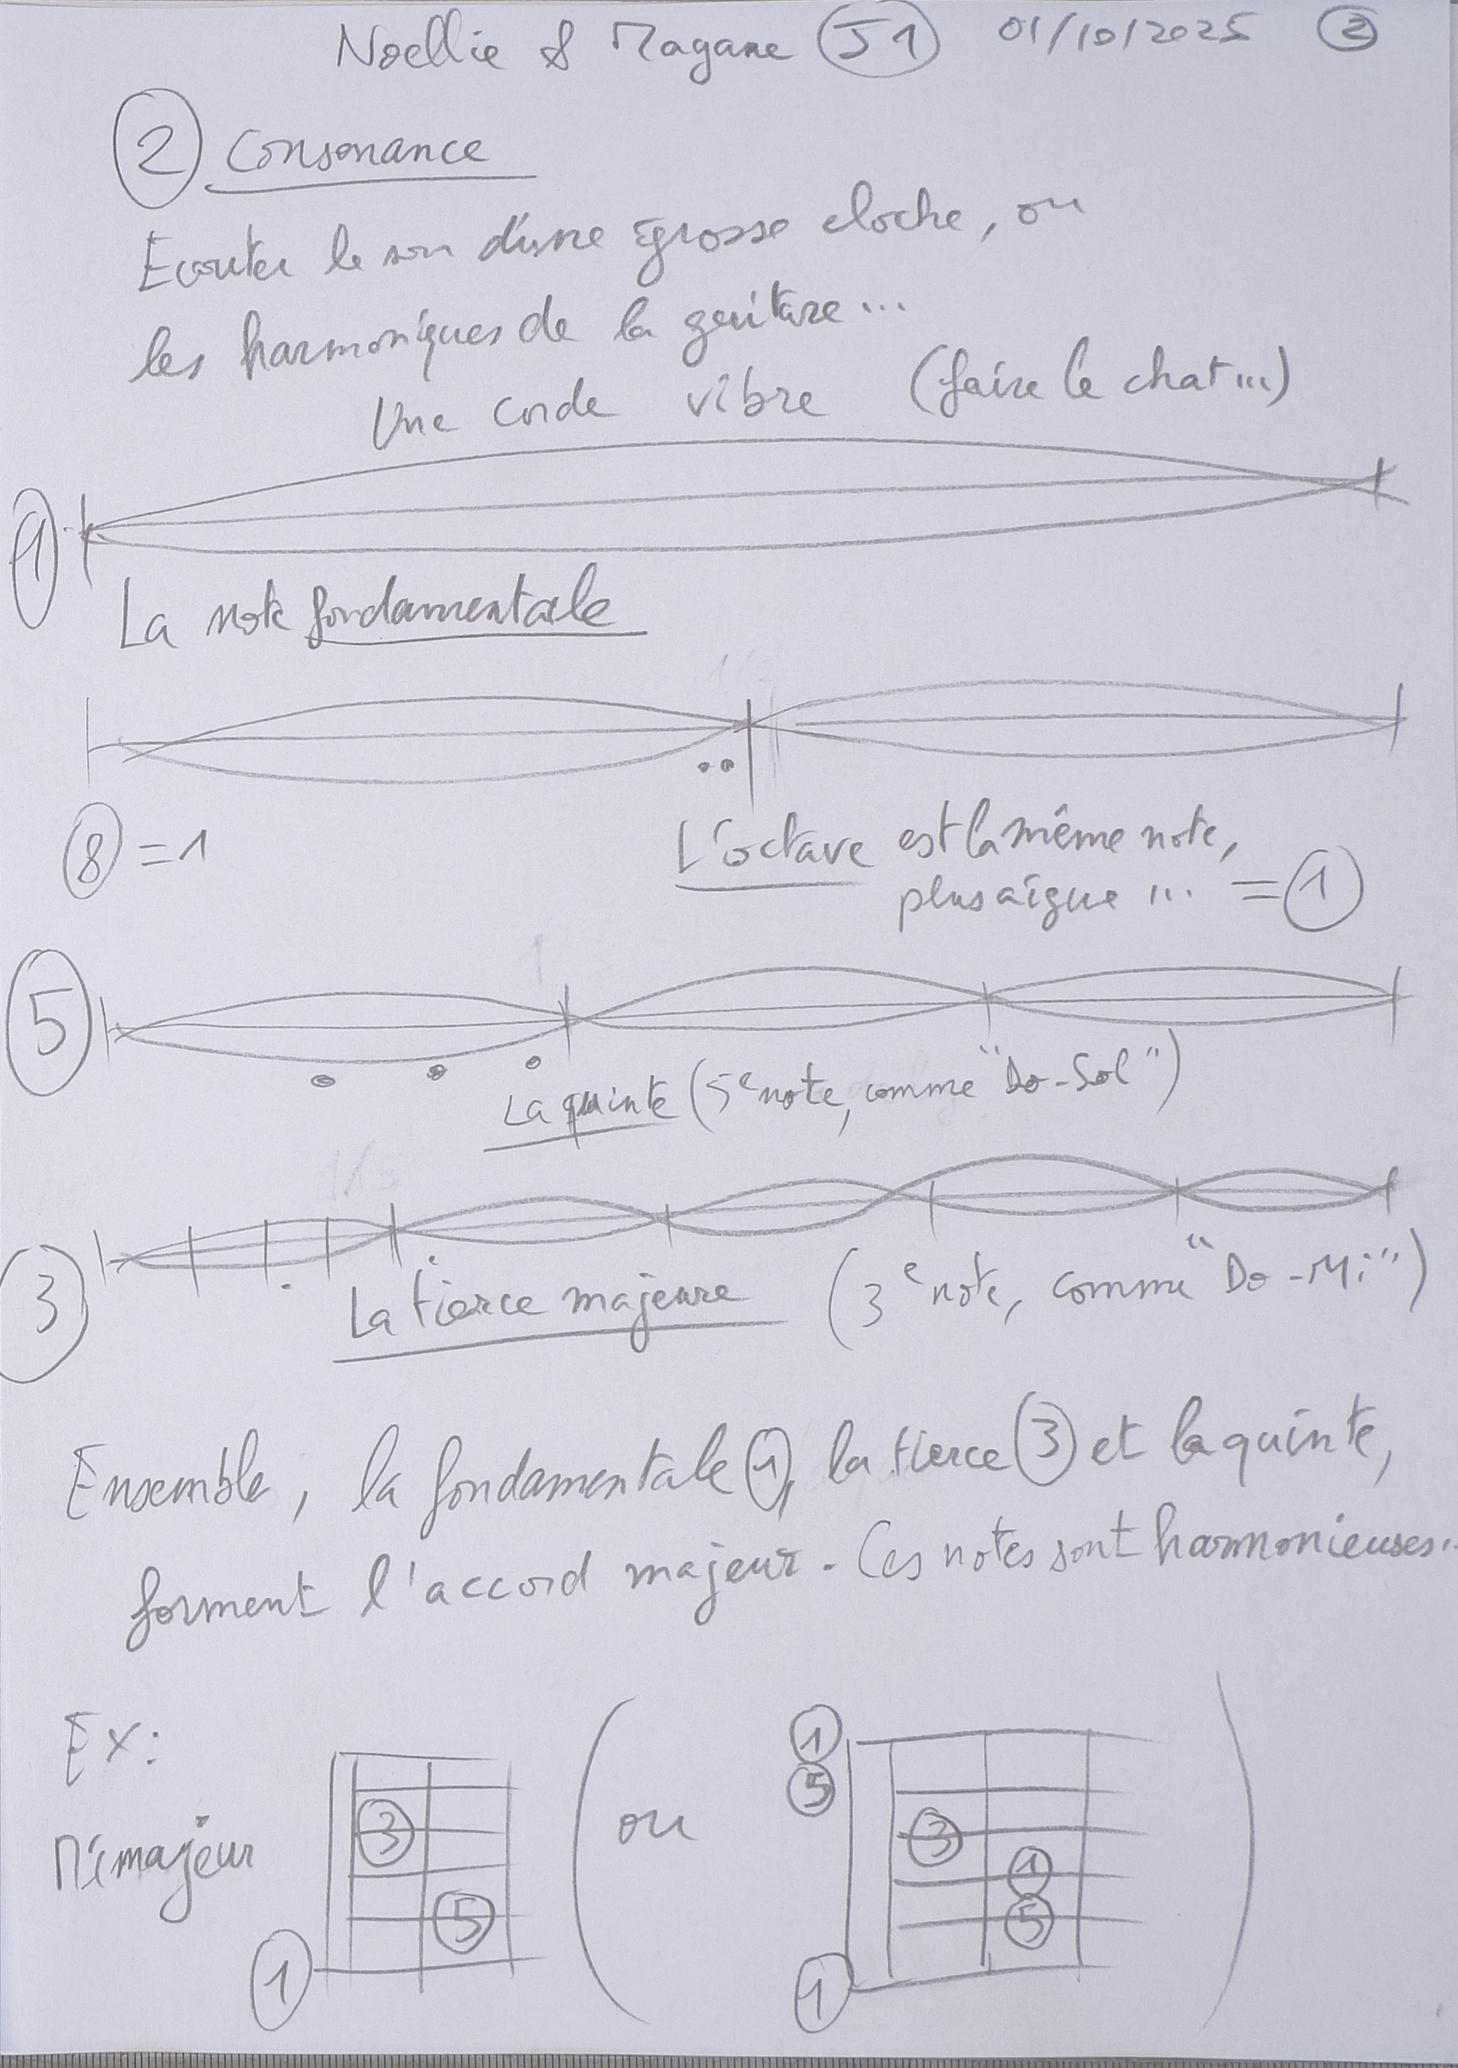 Noellie & Magane J1 01/10/2025 2
2 Consonance
Ecouter le son d'une grosse cloche, ou
les harmoniques de la guitare...
Une corde vibre (faire le chat...)
1
La note fondamentale
1/2
8 = 1
L'octave est la même note,
plus aigue ... = 1
5
La quinte (5e note, comme "Do-Sol")
1/5
3
La tierce majeure (3e note, comme "Do-Mi")
Ensemble, la fondamentale 1, la tierce 3 et la quinte,
forment l'accord majeur. Ces notes sont harmonieuses..
Ex:
Mi majeur
3
5
1
ou
1
5
3
1
5
1